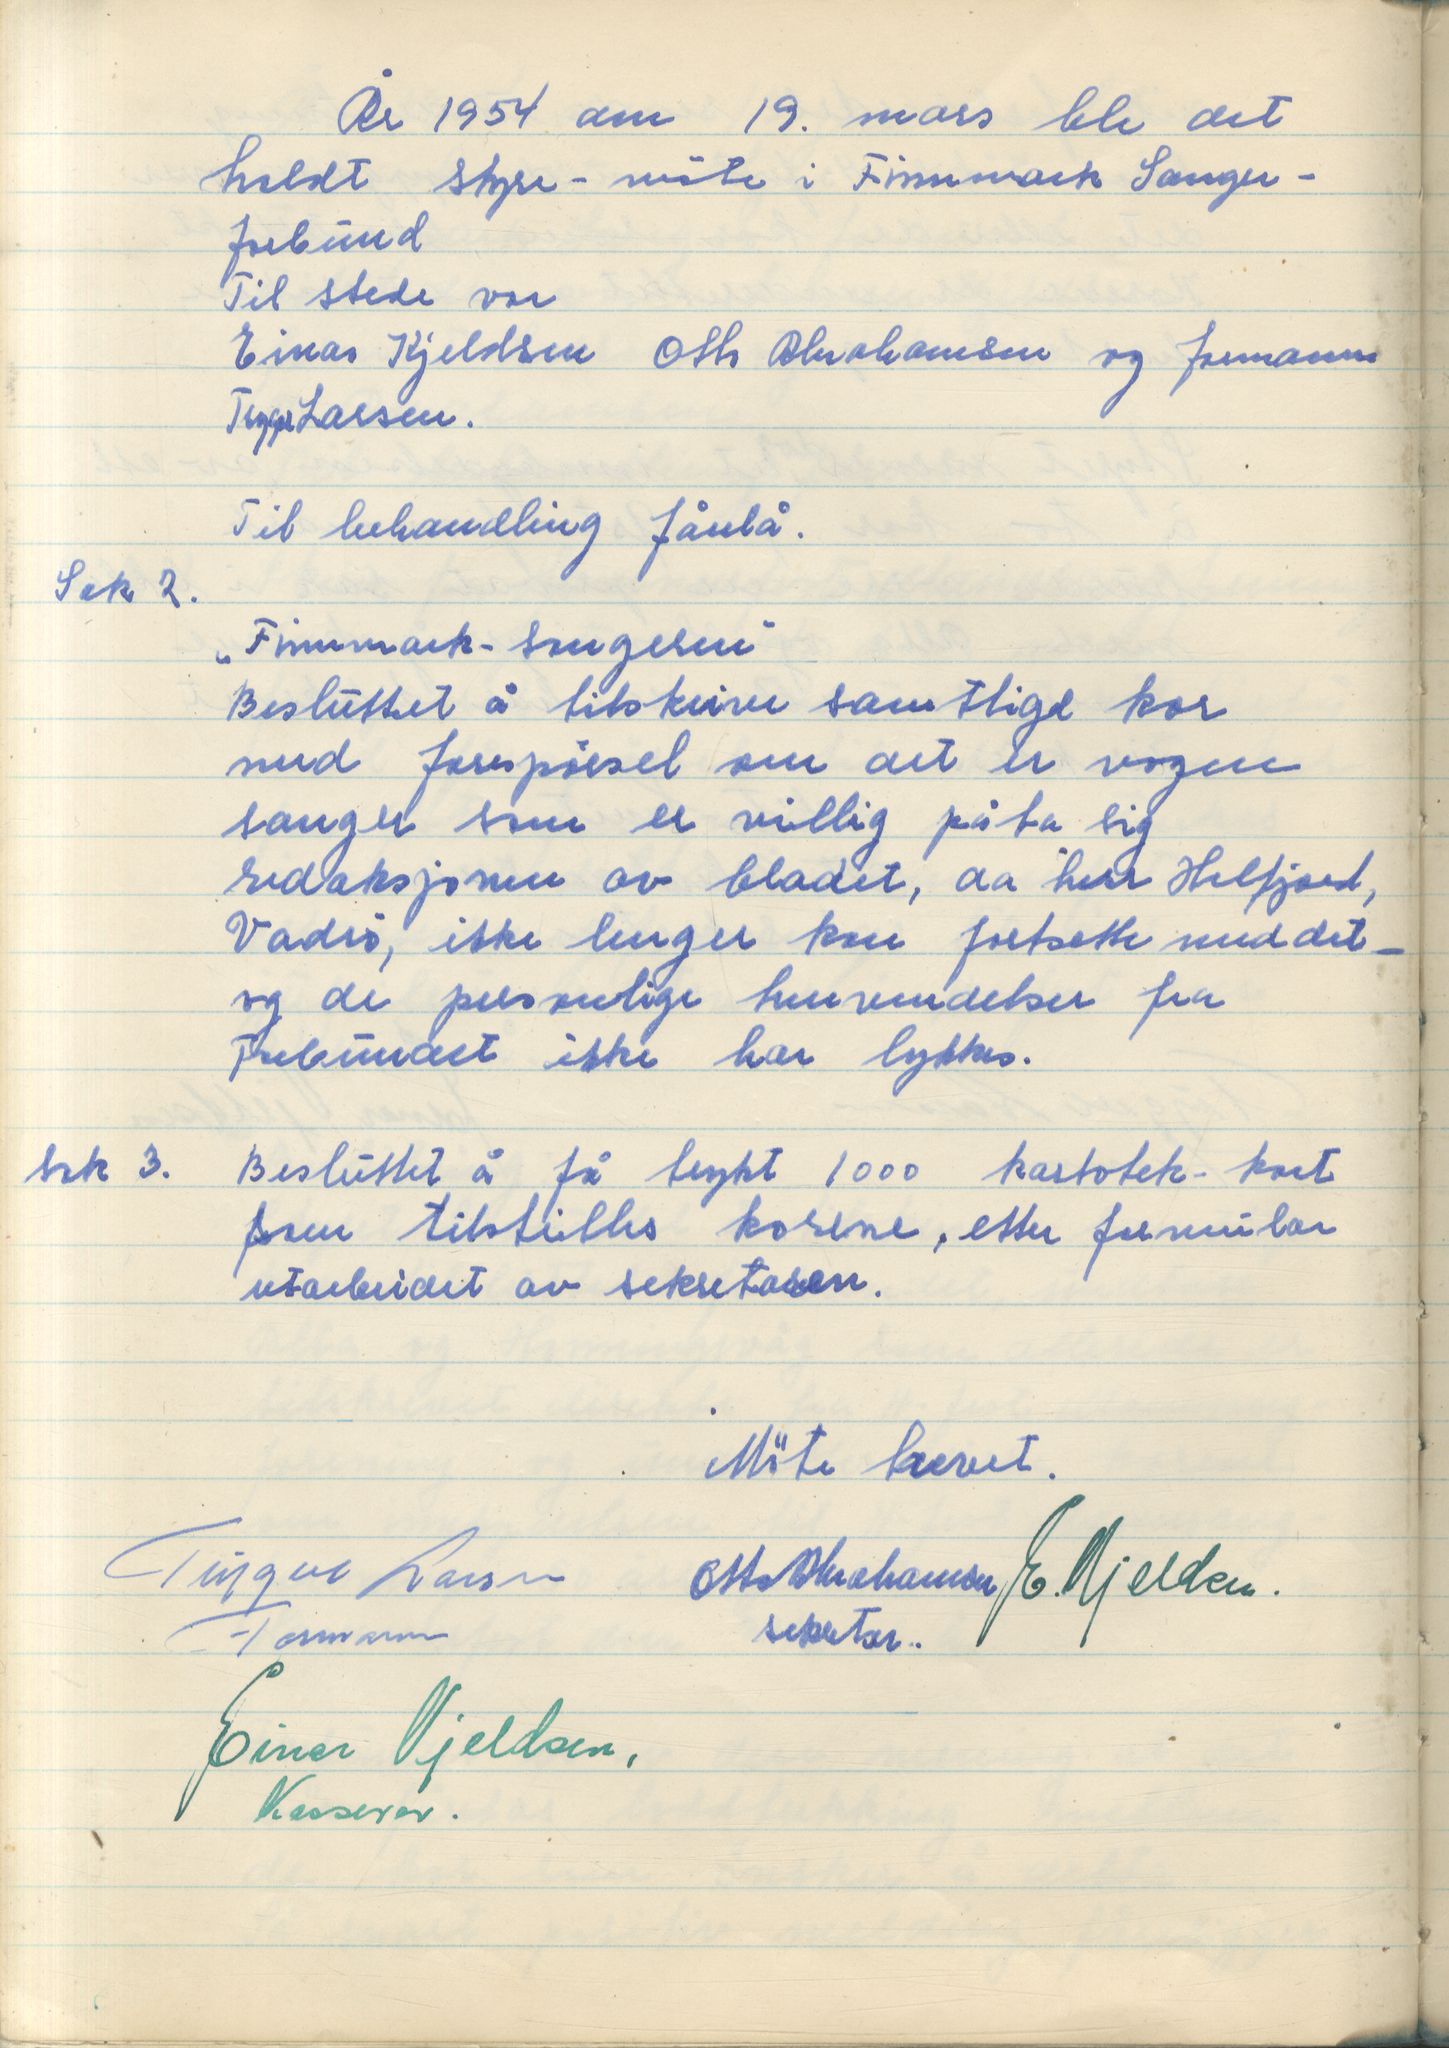 År 1954 den 19. mars ble det
holdt styre-möte i Finnmark Sanger-
forbund
Til stede var
Einar Kjeldsen Otto Abrahamsen og formann
Trygve Larsen.
Til behandling forelå.
Sak 2.
„Finnmark-sangeren"
Besluttet å tilskrive samtlige kor
med forespörsel om det er nogen
sanger som er villig påta sig
redaksjonen av bladet, da herr Helfjord,
Vadsö, ikke lenger kan fortsette med det –
og de personlige henvendelser fra
Forbundet ikke har lykkes.
Sak 3. Besluttet å få trykt 1000 kartotek-kort
som tilstilles korene, etter formular
utarbeidet av sekretæren.
Möte hevet.
Trygve Larsen Otto Abrahamsen E. Kjeldsen.
Formann sekretær.
Einar Kjeldsen.
Kasserer.